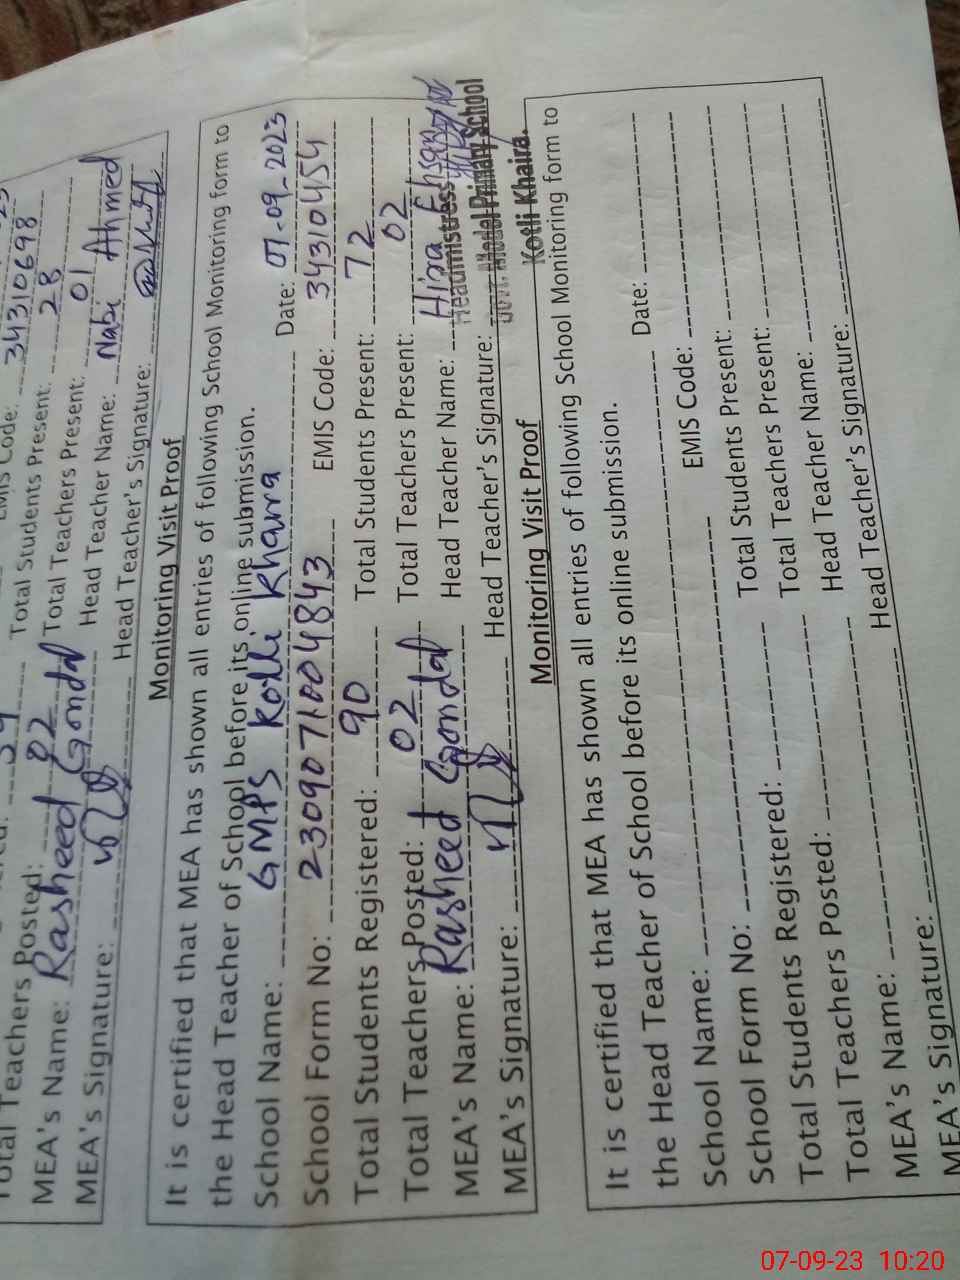 Total Students Present: 28
Total Teachers Posted: 02 Total Teachers Present: 01
MEA's Name: Rasheed Gondal Head Teacher Name: Nabi Ahmed
MEA's Signature: Head Teacher's Signature:
Monitoring Visit Proof
It is certified that MEA has shown all entries of following School Monitoring form to
the Head Teacher of School before its online submission.
School Name: GMPS Kotli Khaira Date: 07-09-2023
School Form No: 2309071004843 EMIS Code: 34310454
Total Students Registered: 90 Total Students Present: 72
Total Teachers Posted: 02 Total Teachers Present: 02
MEA's Name: Rasheed Gondal Head Teacher Name: Hira Ehsan
MEA's Signature: Head Teacher's Signature:
Headmistress
Govt. Model Primary School
Kotli Khaira.
Monitoring Visit Proof
It is certified that MEA has shown all entries of following School Monitoring form to
the Head Teacher of School before its online submission.
School Name: Date:
School Form No: EMIS Code:
Total Students Registered: Total Students Present:
Total Teachers Posted: Total Teachers Present:
MEA's Name: Head Teacher Name:
MEA's Signature: Head Teacher's Signature:
07-09-23 10:20